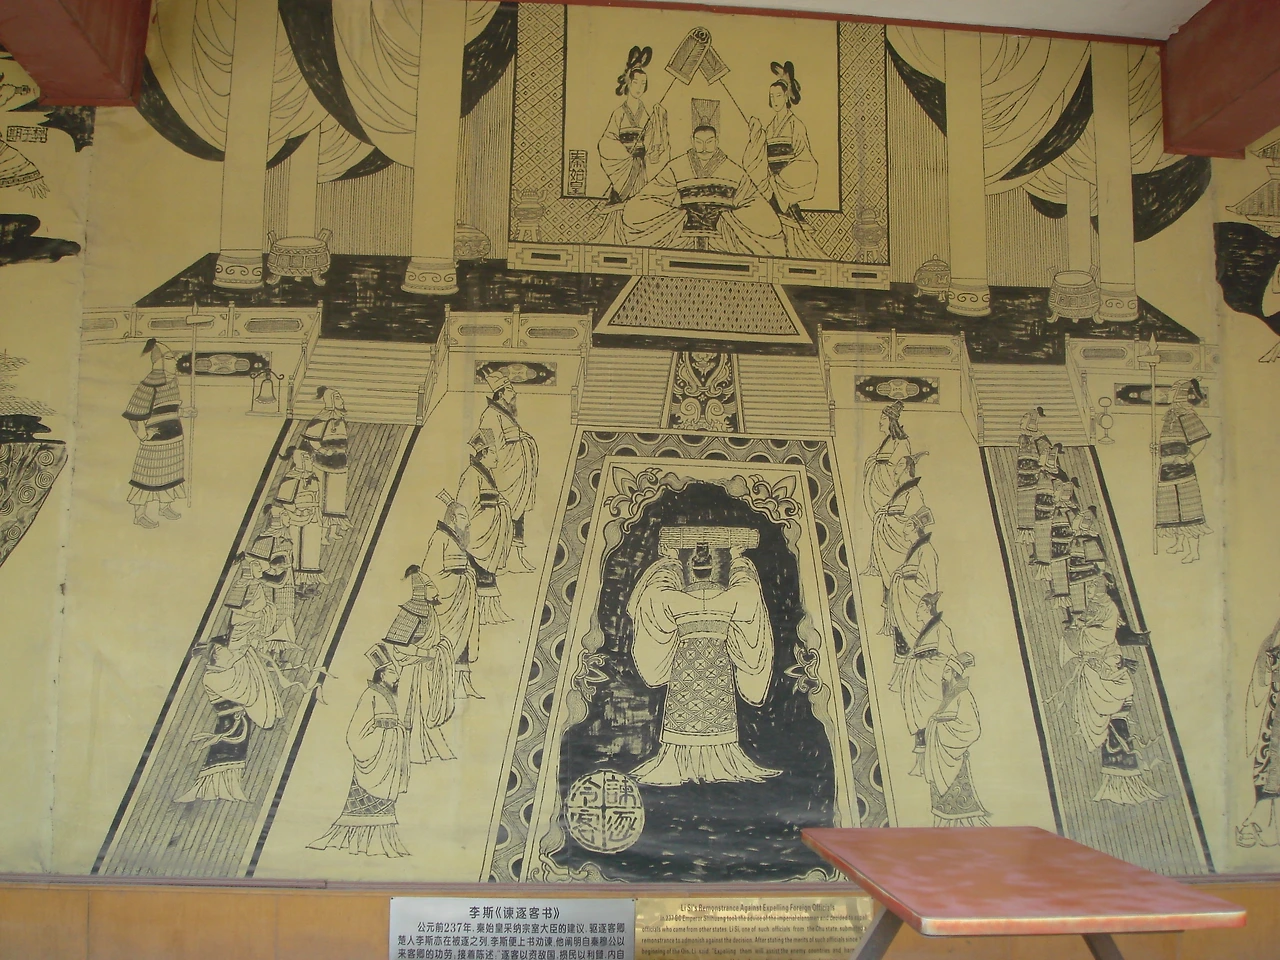 秦始皇
諫逐
令客
李斯《谏逐客书》
公元前237年，秦始皇采纳宗室大臣的建议，驱逐客卿
楚人李斯亦在被逐之列，李斯便上书劝谏，他阐明自秦穆公以
来客卿的功劳，接着陈述，"逐客以资敌国，损民以利雠，内自
Li Si's Remonstrance Against Expelling Foreign Officials
In 237 BC Emperor Shihuang took the advice of the imperial clansmen and decided to expel
officials who come from other states. Li Si, one of such officials from the Chu state, submitted a
remonstrance to admonish against the decision. After stating the merits of such officials since
beginning of the Qin, Li said: "Expelling them will assist the enemy countries and harm